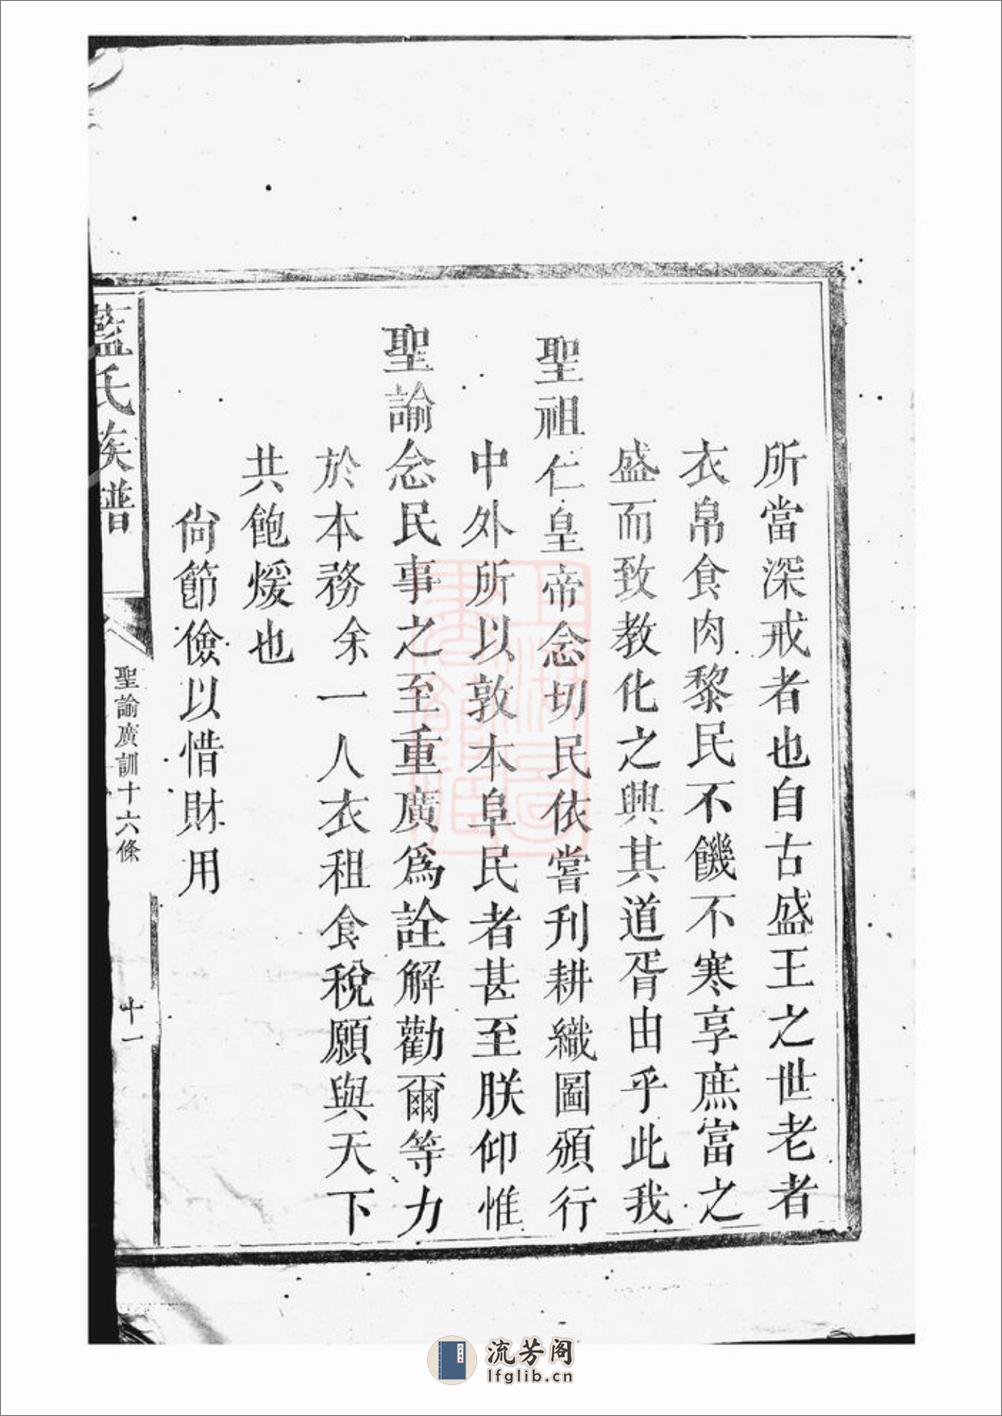 所當深戒者也自古盛王之世老者
衣帛食肉黎民不饑不寒享庶富之
盛而致教化之興其道胥由乎此我
聖祖仁皇帝念切民依嘗刊耕織圖頒行
中外所以敦本阜民者甚至朕仰惟
聖諭念民事之至重廣爲詮解勸爾等力
於本務余一人衣租食稅願與天下
共飽煖也
尙節儉以惜財用
藍氏族譜
聖諭廣訓十六條
十一
流芳阁
lfglib.cn